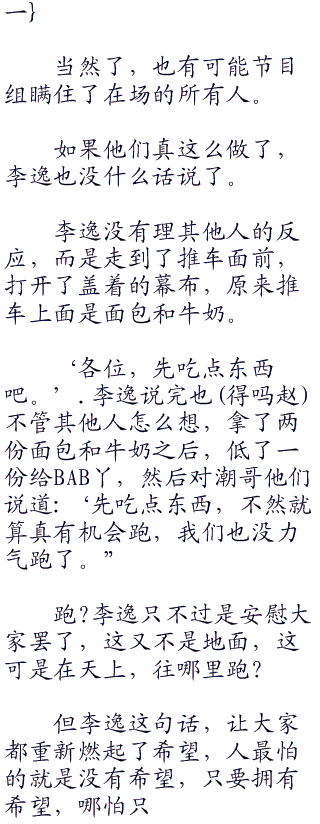 一}
当然了，也有可能节目
组瞒住了在场的所有人。
如果他们真这么做了，
李逸也没什么话说了。
李逸没有理其他人的反
应，而是走到了推车面前，
打开了盖着的幕布，原来推
车上面是面包和牛奶。
‘各位，先吃点东西
吧。’．李逸说完也(得吗赵)
不管其他人怎么想，拿了两
份面包和牛奶之后，低了一
份给BAB丫，然后对潮哥他们
说道:‘先吃点东西，不然就
算真有机会跑，我们也没力
气跑了。”
跑?李逸只不过是安慰大
家罢了，这又不是地面，这
可是在天上，往哪里跑?
但李逸这句话，让大家
都重新燃起了希望，人最怕
的就是没有希望，只要拥有
希望，哪怕只